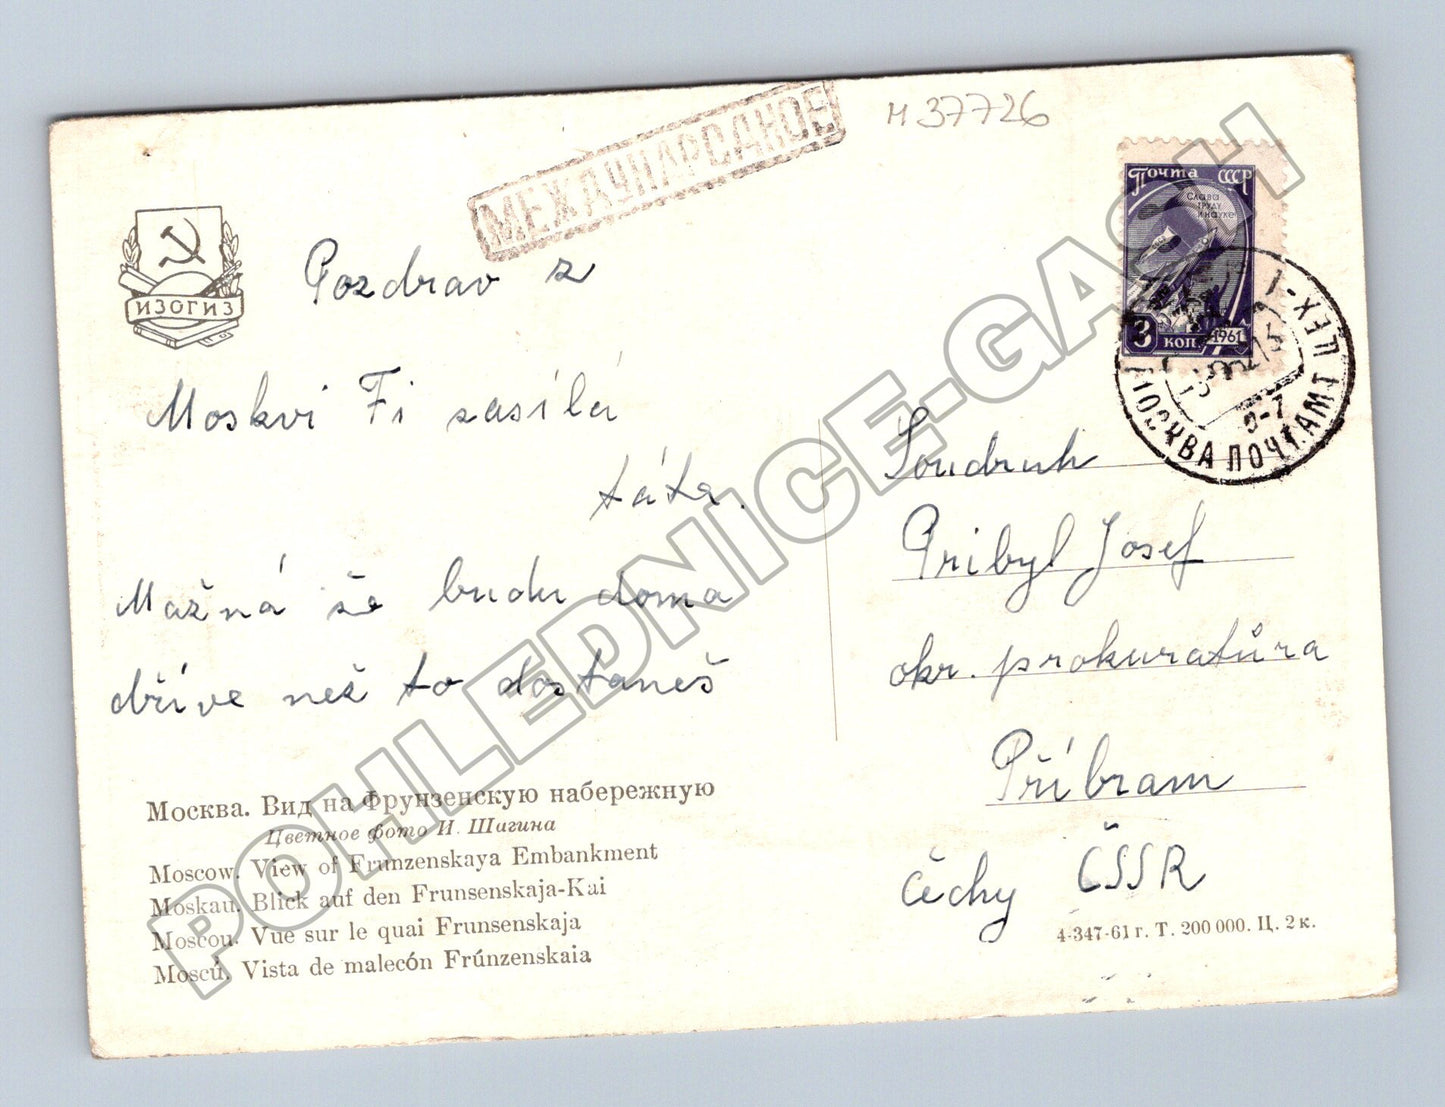 МЕЖДУНАРОДНОЕ
м 37726
Почта СССР
Слава
труду
и науке
3 коп. 1961
МОСКВА ПОЧТАМТ
ЦЕХ-1
ИЗОГИЗ
Pozdrav z
Moskvi Ti zasílá
táta.
Možná že budu doma
dříve než to dostaneš
Soudruh
Pribyl Josef
okr. prokuratůra
Příbram
čechy ČSSR
Москва. Вид на Фрунзенскую набережную
Цветное фото И. Шагина
Moscow. View of Frunzenskaya Embankment
Moskau. Blick auf den Frunsenskaja-Kai
Moscou. Vue sur le quai Frunsenskaja
Moscú. Vista de malecón Frúnzenskaia
4-347-61 г. Т. 200 000. Ц. 2 к.
POHLEDNICE-GASH